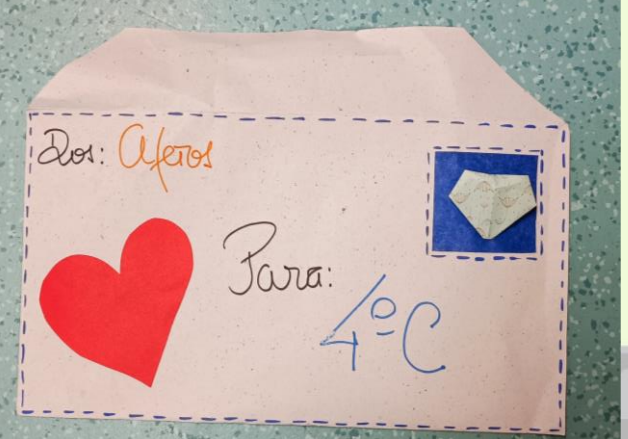 Dos: Aferos
Para:
4º C